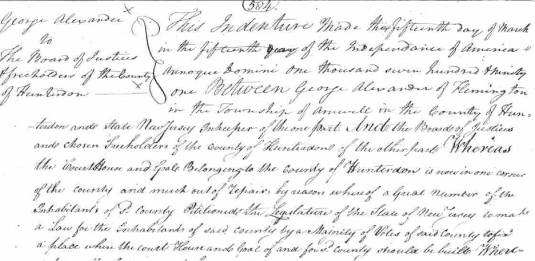 (584)
George Alexander
to
The Board of Justices
& freeholders of the County
of Hunterdon
This Indenture Made this fifteenth day of March
in the fifteenth year of the Independance of America &
annoque Domini one thousand seven hundred & ninety
one Between George Alexander of Flemington
in the Township of Amwell in the County of Hun-
terdon and State New Jersey Inkeeper of the one part And the Board of Justices
and chosen Freeholders of the County of Hunterdon of the other part Whereas
the Court House and Goal Belonging to the County of Hunterdon is now in one corner
of the county and much out of repair, by reason where of a Great Number of the
Inhabitants of Sd. County Petitioned the Legislature of the State of New Jersey to make
a Law for the Inhabitants of said county by a Majority of Votes of said County to fix
a place where the court House and Goal of and for Sd. County should be built Where-